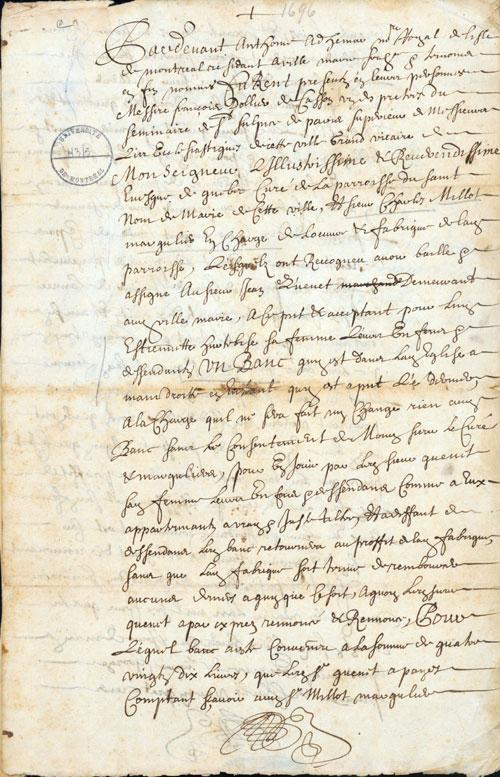 1696
UNIVERSITÉ
DE MONTRÉAL
Pardevant Anthoine Adhemar nore Royal de lisle
de montreal residant aville marie
en fin nommez furent presents en leurs personnes
Messire françois Dollier de Casson un des prestres du
seminaire de St sulpice de paris superieur de Messieurs
Les Ecclesiastiques de cette ville Grand vicaire de
Mon Seigneur L'Illustrissime & Reverendissime
Evesque de quebec Curé de La parroisse du saint
Nom de Marie de Cette ville, & sieur Charles Millot
marguiller En Charge de Loeuvre & fabrique de lad
parroisse, Lesquels ont Recogneu avoir baillé &
assigné Au sieur Jean Quenet marchand Demeurant
aud ville marie, A ce pnt & acceptant pour Luy
Estiennette hurtebise sa femme Leurs Enfens &
dessendants Un Banc quy est dans Lad Eglise a
main droite en quy est apnt Le dernier
A la Charge quil ne sera fait ny Changé rien aud
Banc sans Le Consentement de Mond sieur Le Curé
& marguilliers, pour En Jouir par Led sieur quenet
sad femme Leurs Enfens & dessendans Comme a Eux
appartenant, & a deffaut de
dessendans Led banc retournera au proffit de lad fabrique,
sans que Lad fabrique soit tenue de rembourser
aucuns deniers a quy que Ce soit, aquoy Led sieur
quenet a par exprez renoncé & Renonce, Pour
Lequel banc a esté Convenu a La somme de quatre
vingts dix Livres, que Led sr quenet a payez
Comptant scavoir aud sr Millot marguillier